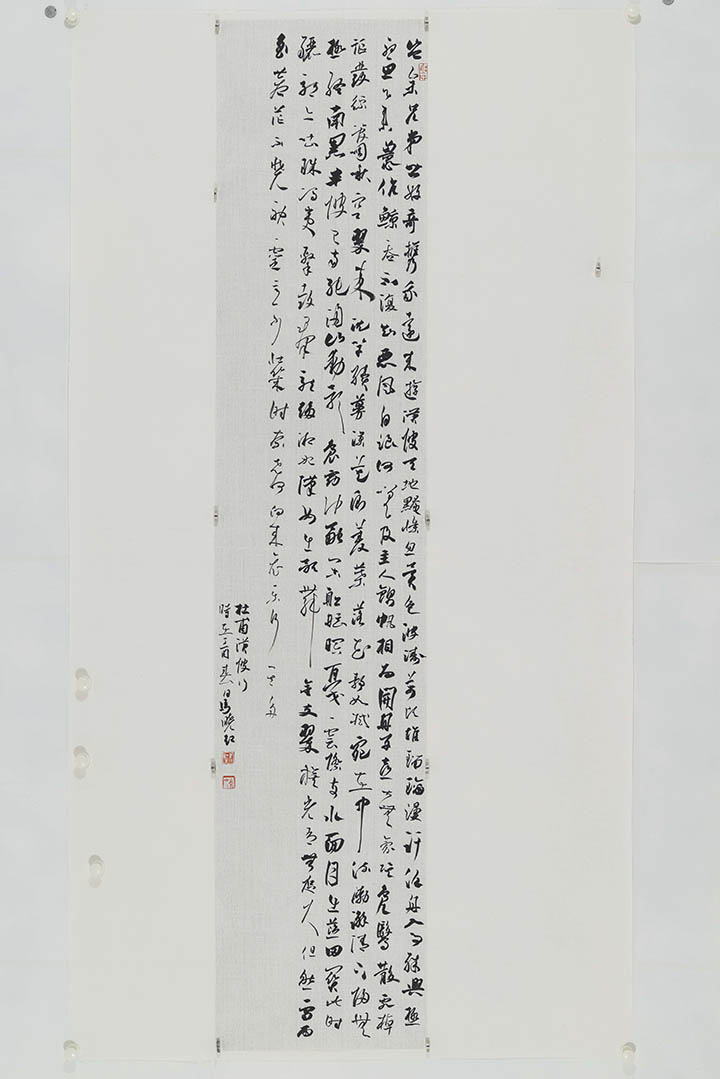 岑參兄弟皆好奇攜我遠來遊渼陂天地黤慘忽異色波濤萬頃堆瑠璃漫汗泛舟入事殊興極
憂思集鼉作鯨吞不復知惡風白浪何嗟及主人錦帆相為開舟子喜甚無氛埃鳧鷖散亂棹
謳發絲管啁啾空翠來沈竿續蔓深莫測菱葉荷花靜如拭宛在中流渤澥清下歸無
極終南黑半陂已南純浸山動影裊窕沖融間船舷暝戛雲際寺水面月出藍田關此時
驪龍亦吐珠馮夷擊鼓群龍趨湘妃漢女出歌舞金支翠旗光有無咫尺但愁雷雨
至蒼茫不曉神靈意少壯幾時奈老何向來哀樂何其多
杜甫渼陂行
時在二月春日馬曉紅